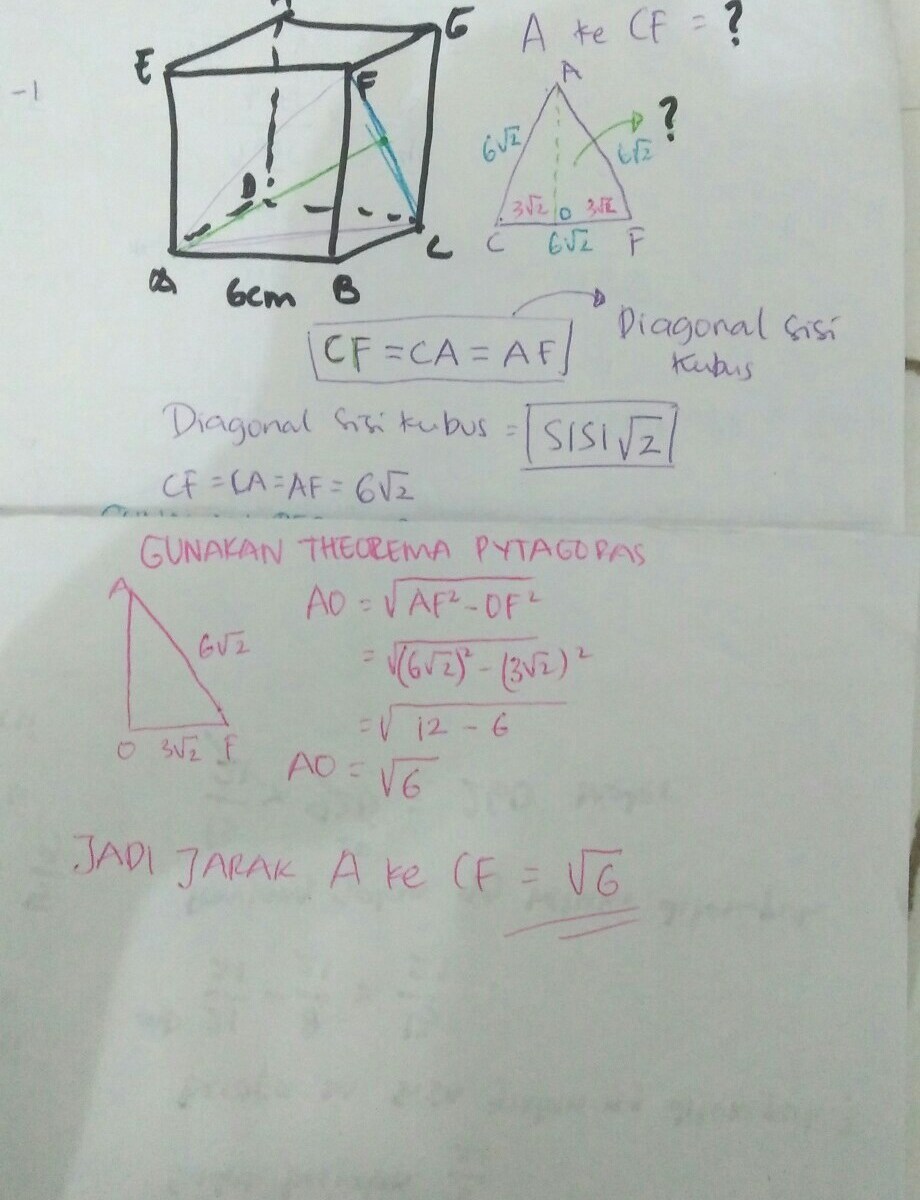 A ke CF = ?
-1
E
G
F
D
A
B
C
6cm
A
6√2
6√2
?
3√2
O
3√2
C
6√2
F
CF = CA = AF
Diagonal sisi
kubus
Diagonal sisi kubus = SISI √2
CF = CA = AF = 6√2
GUNAKAN THEOREMA PYTAGORAS
A
6√2
O
3√2
F
AO = √AF² - OF²
= √(6√2)² - (3√2)²
= √12 - 6
AO = √6
JADI JARAK A ke CF = √6